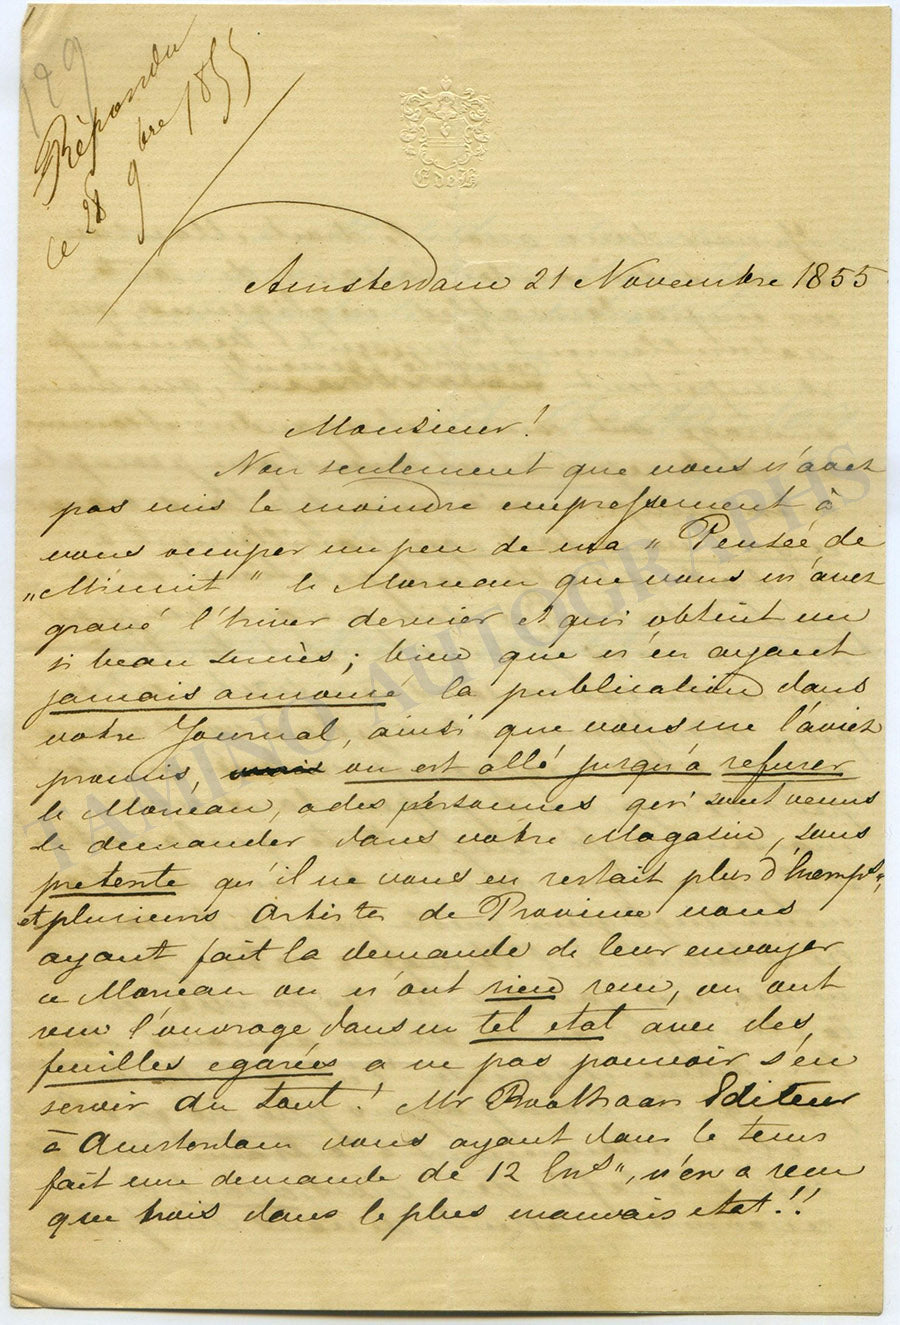 129
Répondu
ce 28 9bre 1855
E de H
Amsterdam 21 Novembre 1855
Monsieur!
Non seulement que vous n'avez
pas mis le moindre empressement à
vous occuper un peu de ma „Pensée de
„Minuit" le Morceau que vous m'avez
gravé l'hiver dernier et qui obtint un
si beau succès; bien que n'en ayant
jamais annoncé la publication dans
votre Journal, ainsi que vous me l'aviez
promis, mais on est allé jusqu'à refuser
le Morceau, a des personnes qui sont venus
le demander dans votre Magasin, sous
pretexte qu'il ne vous en restait plus d'Exempl",
et plusieurs Artistes de Province vous
ayant fait la demande de leur envoyer
ce Morceau ou n'ont rien recu, ou ont
recu l'ouvrage dans un tel etat avec des
feuilles egarées a ne pas pouvoir s'en
servir du tout! Mr Roothaan Editeur
à Amsterdam vous ayant dans le tems
fait une demande de 12 n'en a recu
que trois dans le plus mauvais etat!!
TAMINO AUTOGRAPHS